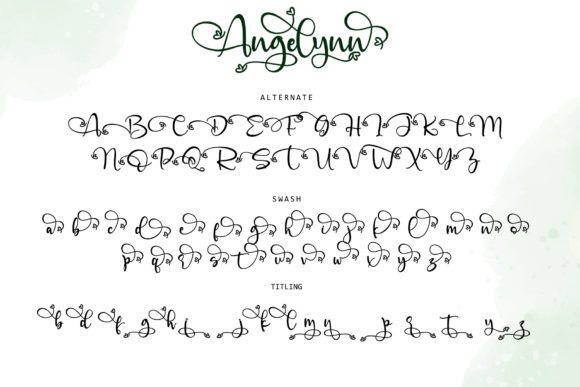 Angelynn
ALTERNATE
A B C D E F G H I J K L M
N O P Q R S T U V W X Y Z
SWASH
a b c d e f g h i j k l m n o
p q r s t u v w x y z
TITLING
b d f g h i j k l m y p s t y z